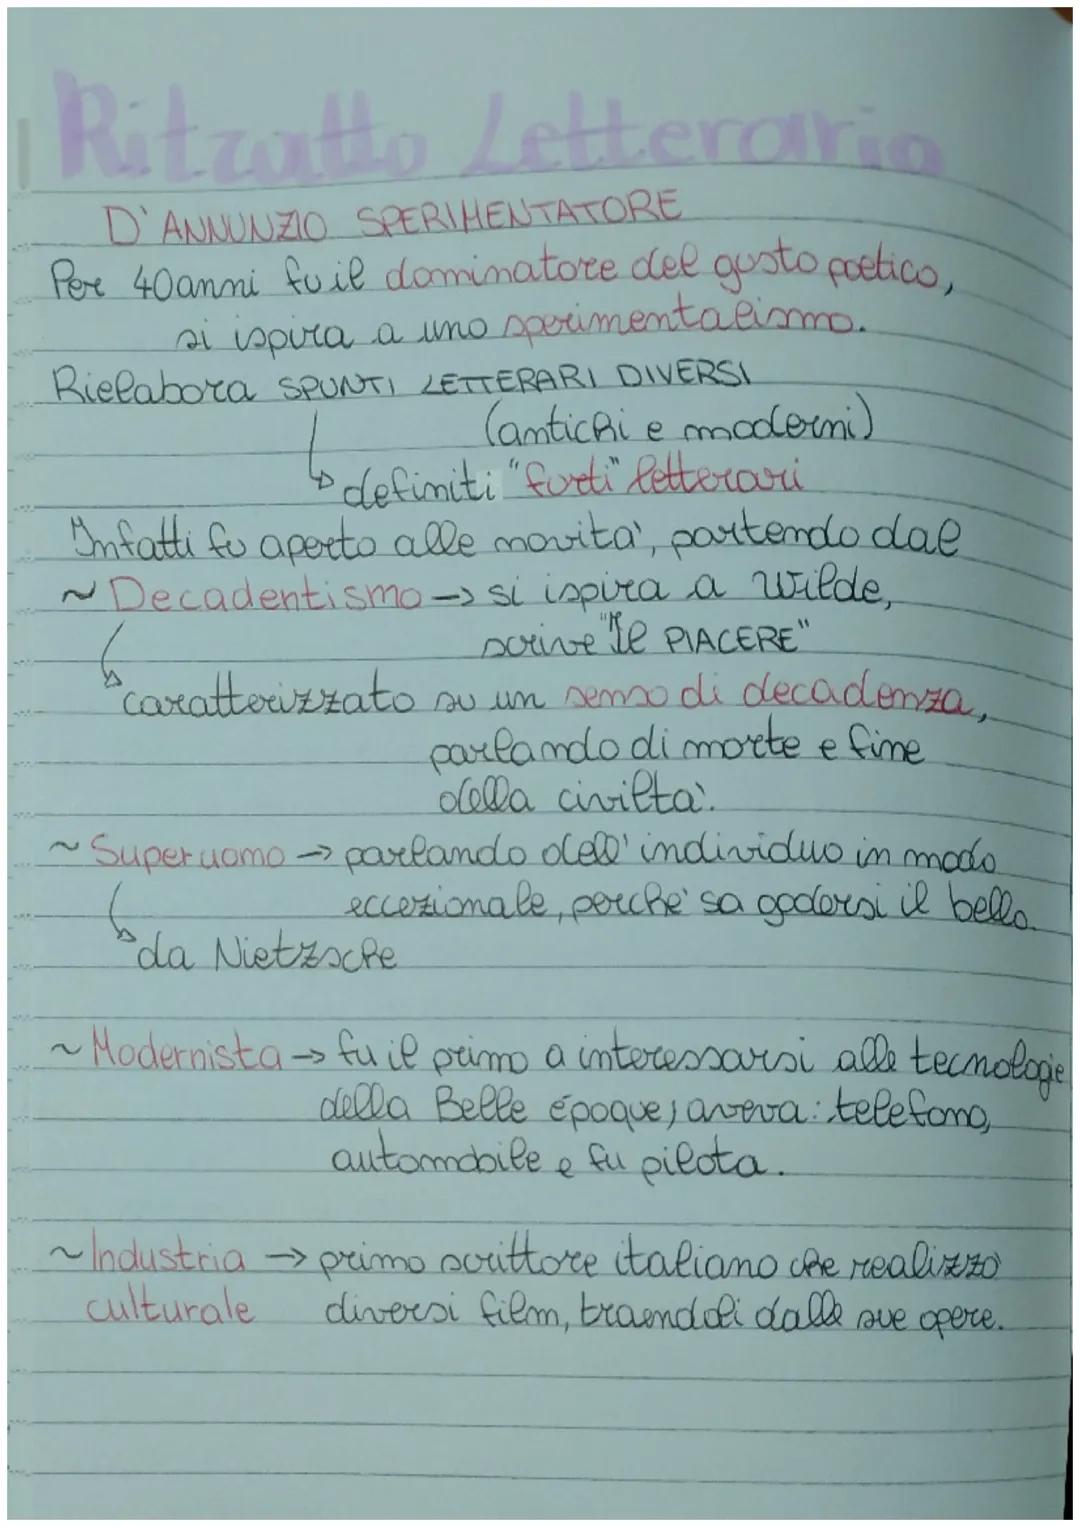 Ritratto Letterario
D'ANNUNZIO SPERIMENTATORE
Per 40anni fu il dominatore del gusto poetico,
si ispira a uno sperimentalismo.
Rielabora SPUNTI LETTERARI DIVERSI
(antichi e moderni)
definiti "furti" letterari
Infatti fu aperto alle novita', partendo dal
~ Decadentismo → si ispira a Wilde,
scrive "Il PIACERE"
caratterizzato su un senso di decadenza,
parlando di morte e fine
della civilta'.
~ Superuomo → parlando dell'individuo in modo
eccezionale, perche' sa godersi il bello.
da Nietzsche
~ Modernista → fu il primo a interessarsi alle tecnologie
della Belle époque, aveva: telefono,
automobile e fu pilota.
~ Industria → primo scrittore italiano che realizzo'
culturale diversi film, traendoli dalle sue opere.